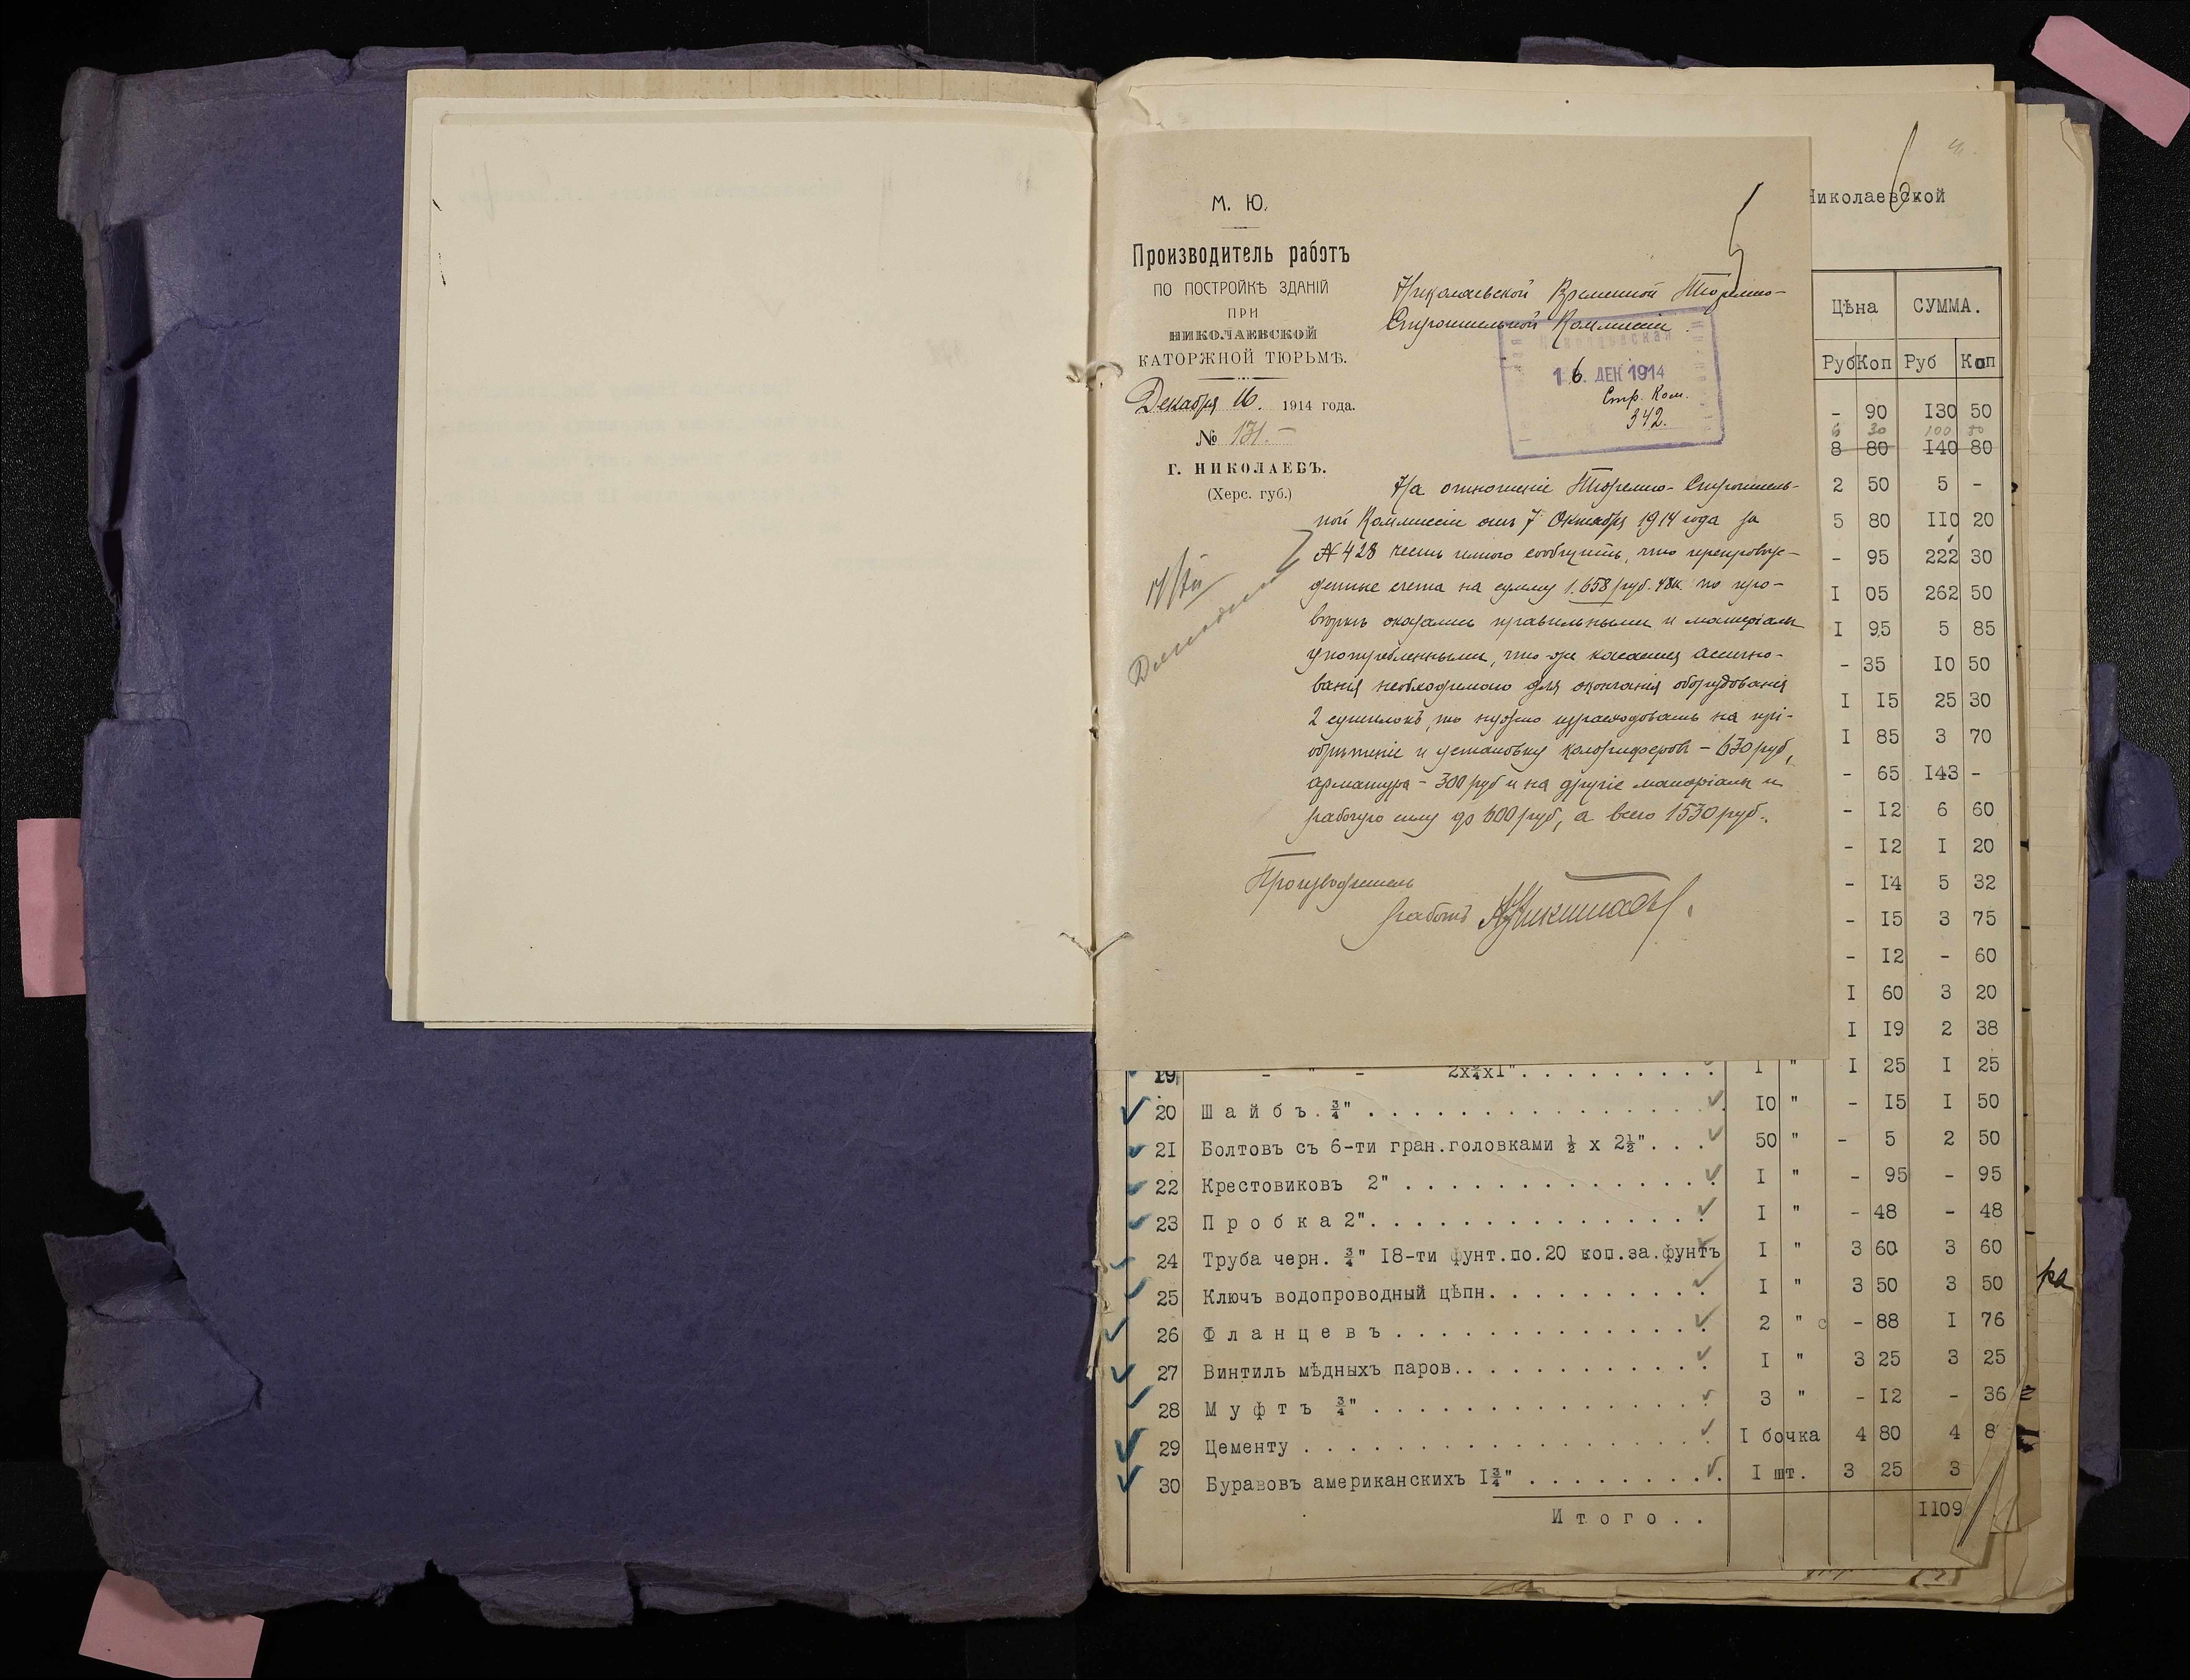 М. Ю.
Производитель работъ
ПО ПОСТРОЙКѢ ЗДАНІЙ
ПРИ
НИКОЛАЕВСКОЙ
КАТОРЖНОЙ ТЮРЬМѢ.
Декабря 16. 1914 года.
№ 131.-
Г. НИКОЛАЕВЪ.
(Херс. губ.)
5
Николаевской Временной Тюремно-
Строительной Коммиссіи.
16. ДЕК 1914
Стр. Ком.
342.
На отношеніе Тюремно-Строитель-
ной Коммиссіи отъ 7 Октября 1914 года за
№ 428 честь имѣю сообщить, что препровож-
денные счета на сумму 1.658 руб. 48к. по про-
вѣркѣ оказались правильными и матеріалы
употребленными, что же касается ассигно-
ванія необходимаго для окончанія оборудованія
2 сушилокъ, то нужно израсходовать на прі-
обрѣтеніе и установку калориферовъ - 630 руб,
арматура - 300 руб и на другіе матеріалы и
рабочую силу до 600 руб, а всего 1530 руб.
Производитель
работъ
17/XII
6
Николаевской
Цѣна СУММА.
Руб Коп Руб Коп
- 90 130 50
6 30 100 80
8 80 140 80
2 50 5 -
5 80 110 20
- 95 222 30
I 05 262 50
I 95 5 85
- 35 10 50
I 15 25 30
I 85 3 70
- 65 143 -
- 12 6 60
- 12 I 20
- 14 5 32
- 15 3 75
- 12 - 60
I 60 3 20
I 19 2 38
19 - " - 2х¾хI". . . . . . . . . . I " I 25 I 25
20 Шайбъ ¾" . . . . . . . . . . . . . . . 10 " - 15 I 50
21 Болтовъ съ 6-ти гран.головками ½ х 2½". . . . 50 " - 5 2 50
22 Крестовиковъ 2" . . . . . . . . . . . . . . I " - 95 - 95
23 Пробка 2". . . . . . . . . . . . . . . . I " - 48 - 48
24 Труба черн. ¾" 18-ти фунт.по.20 коп.за.фунтъ I " 3 60 3 60
25 Ключъ водопроводный цѣпн. . . . . . . . . . I " 3 50 3 50
26 Фланцевъ . . . . . . . . . . . . . . . 2 " - 88 I 76
27 Винтиль мѣдныхъ паров.. . . . . . . . . . . I " 3 25 3 25
28 Муфтъ ¾" . . . . . . . . . . . . . . . . 3 " - 12 - 36
29 Цементу . . . . . . . . . . . . . . . . . I бочка 4 80 4 8
30 Буравовъ американскихъ I¾" . . . . . . . . . I шт. 3 25 3
Итого . . 1109
ра